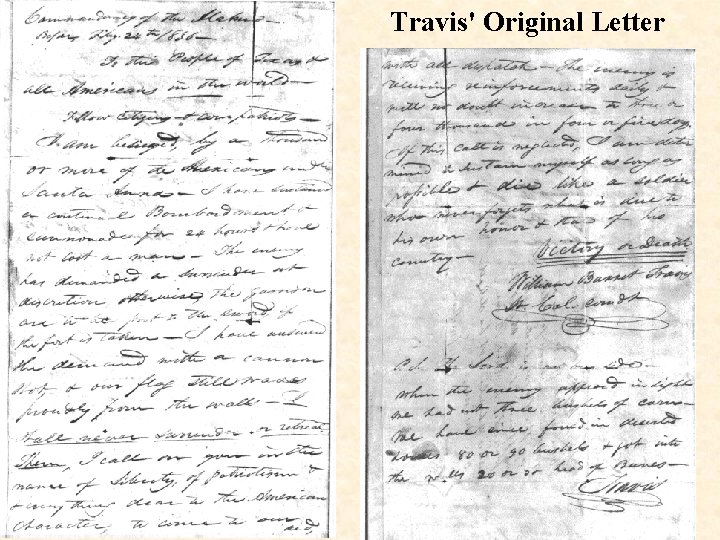 Travis' Original Letter
Commandancy of the Alamo—
Bejar, Feby. 24th 1836—
To the People of Texas &
all Americans in the world—
Fellow citizens & compatriots—
I am besieged, by a thousand
or more of the Mexicans under
Santa Anna— I have sustained
a continual Bombardment &
cannonade for 24 hours & have
not lost a man— The enemy
has demanded a surrender at
discretion, otherwise, the garrison
are to be put to the sword, if
the fort is taken— I have answered
the demand with a cannon
shot, & our flag still waves
proudly from the walls— I
shall never surrender or retreat
Then, I call on you in the
name of Liberty, of patriotism &
every thing dear to the American
character, to come to our aid,
with all dispatch— The enemy is
receiving reinforcements daily &
will no doubt increase to three or
four thousand in four or five days.
If this call is neglected, I am deter
mined to sustain myself as long as
possible & die like a soldier
who never forgets what is due to
his own honor & that of his
country—
Victory or Death
William Barret Travis
Lt. Col. comdt
P.S. The Lord is on our side—
when the enemy appeared in sight
we had not three bushels of corn—
we have since found in deserted
houses 80 or 90 bushels & got into
the walls 20 or 30 head of Beeves—
Travis